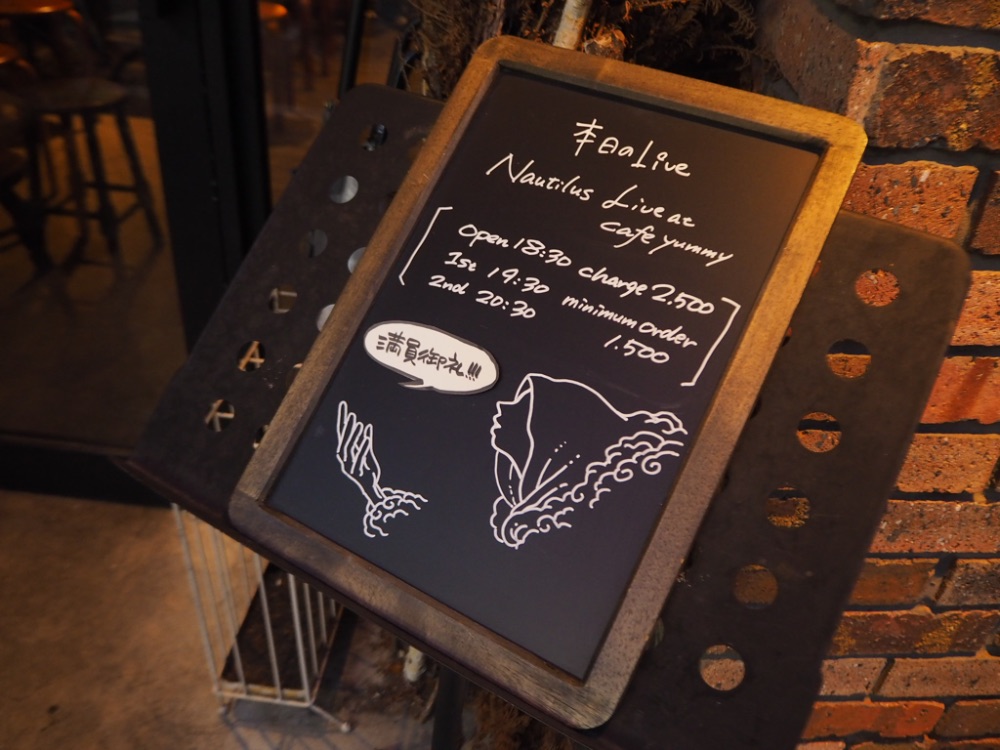 本日のLive
Nautilus Live at
cafe yummy
Open 18:30 charge 2.500
1st 19:30 minimum order
2nd 20:30 1.500
満員御礼!!!